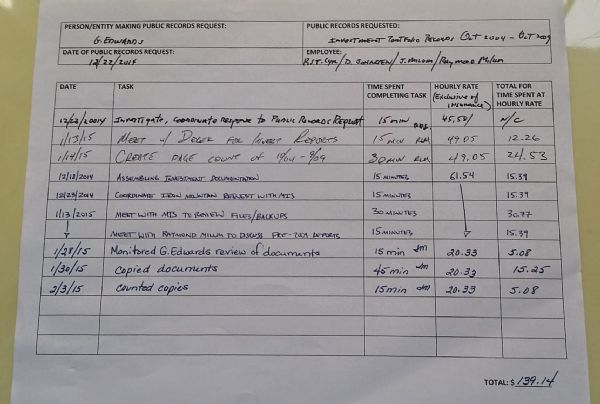 PERSON/ENTITY MAKING PUBLIC RECORDS REQUEST:
G. EDWARDS
PUBLIC RECORDS REQUESTED:
INVESTMENT PORTFOLIO RECORDS OCT 2004 - OCT 2009
DATE OF PUBLIC RECORDS REQUEST:
12/22/2014
EMPLOYEE:
R. ST. Cyr / D. JOHNSTON / J. MILUM / Raymond Milum
DATE TASK TIME SPENT COMPLETING TASK HOURLY RATE (Exclusive of insurance) TOTAL FOR TIME SPENT AT HOURLY RATE
12/22/2014 INVESTIGATE, COORDINATE RESPONSE TO PUBLIC RECORDS REQUEST 15 min 45.50/ N/C
1/13/15 MEET W/ FOR INVEST REPORTS 15 MIN RLM 49.05 12.26
1/14/15 CREATE PAGE COUNT OF 10/04 - 9/09 30 MIN RLM 49.05 24.53
12/18/2014 ASSEMBLING INVESTMENT DOCUMENTATION 15 MINUTES 61.54 15.39
12/23/2014 COORDINATE IRON MOUNTAIN REQUEST WITH MIS 15 MINUTES 15.39
1/13/2015 MEET WITH MIS TO REVIEW FILES/BACKUPS 30 MINUTES 30.77
MEET WITH RAYMOND MILUM TO DISCUSS REPORTS 15 MINUTES 15.39
1/28/15 Monitored G. Edwards review of documents 15 min JM 20.33 5.08
1/30/15 Copied documents 45 min JM 20.33 15.25
2/3/15 Counted copies 15 min JM 20.33 5.08
TOTAL: $ 139.14